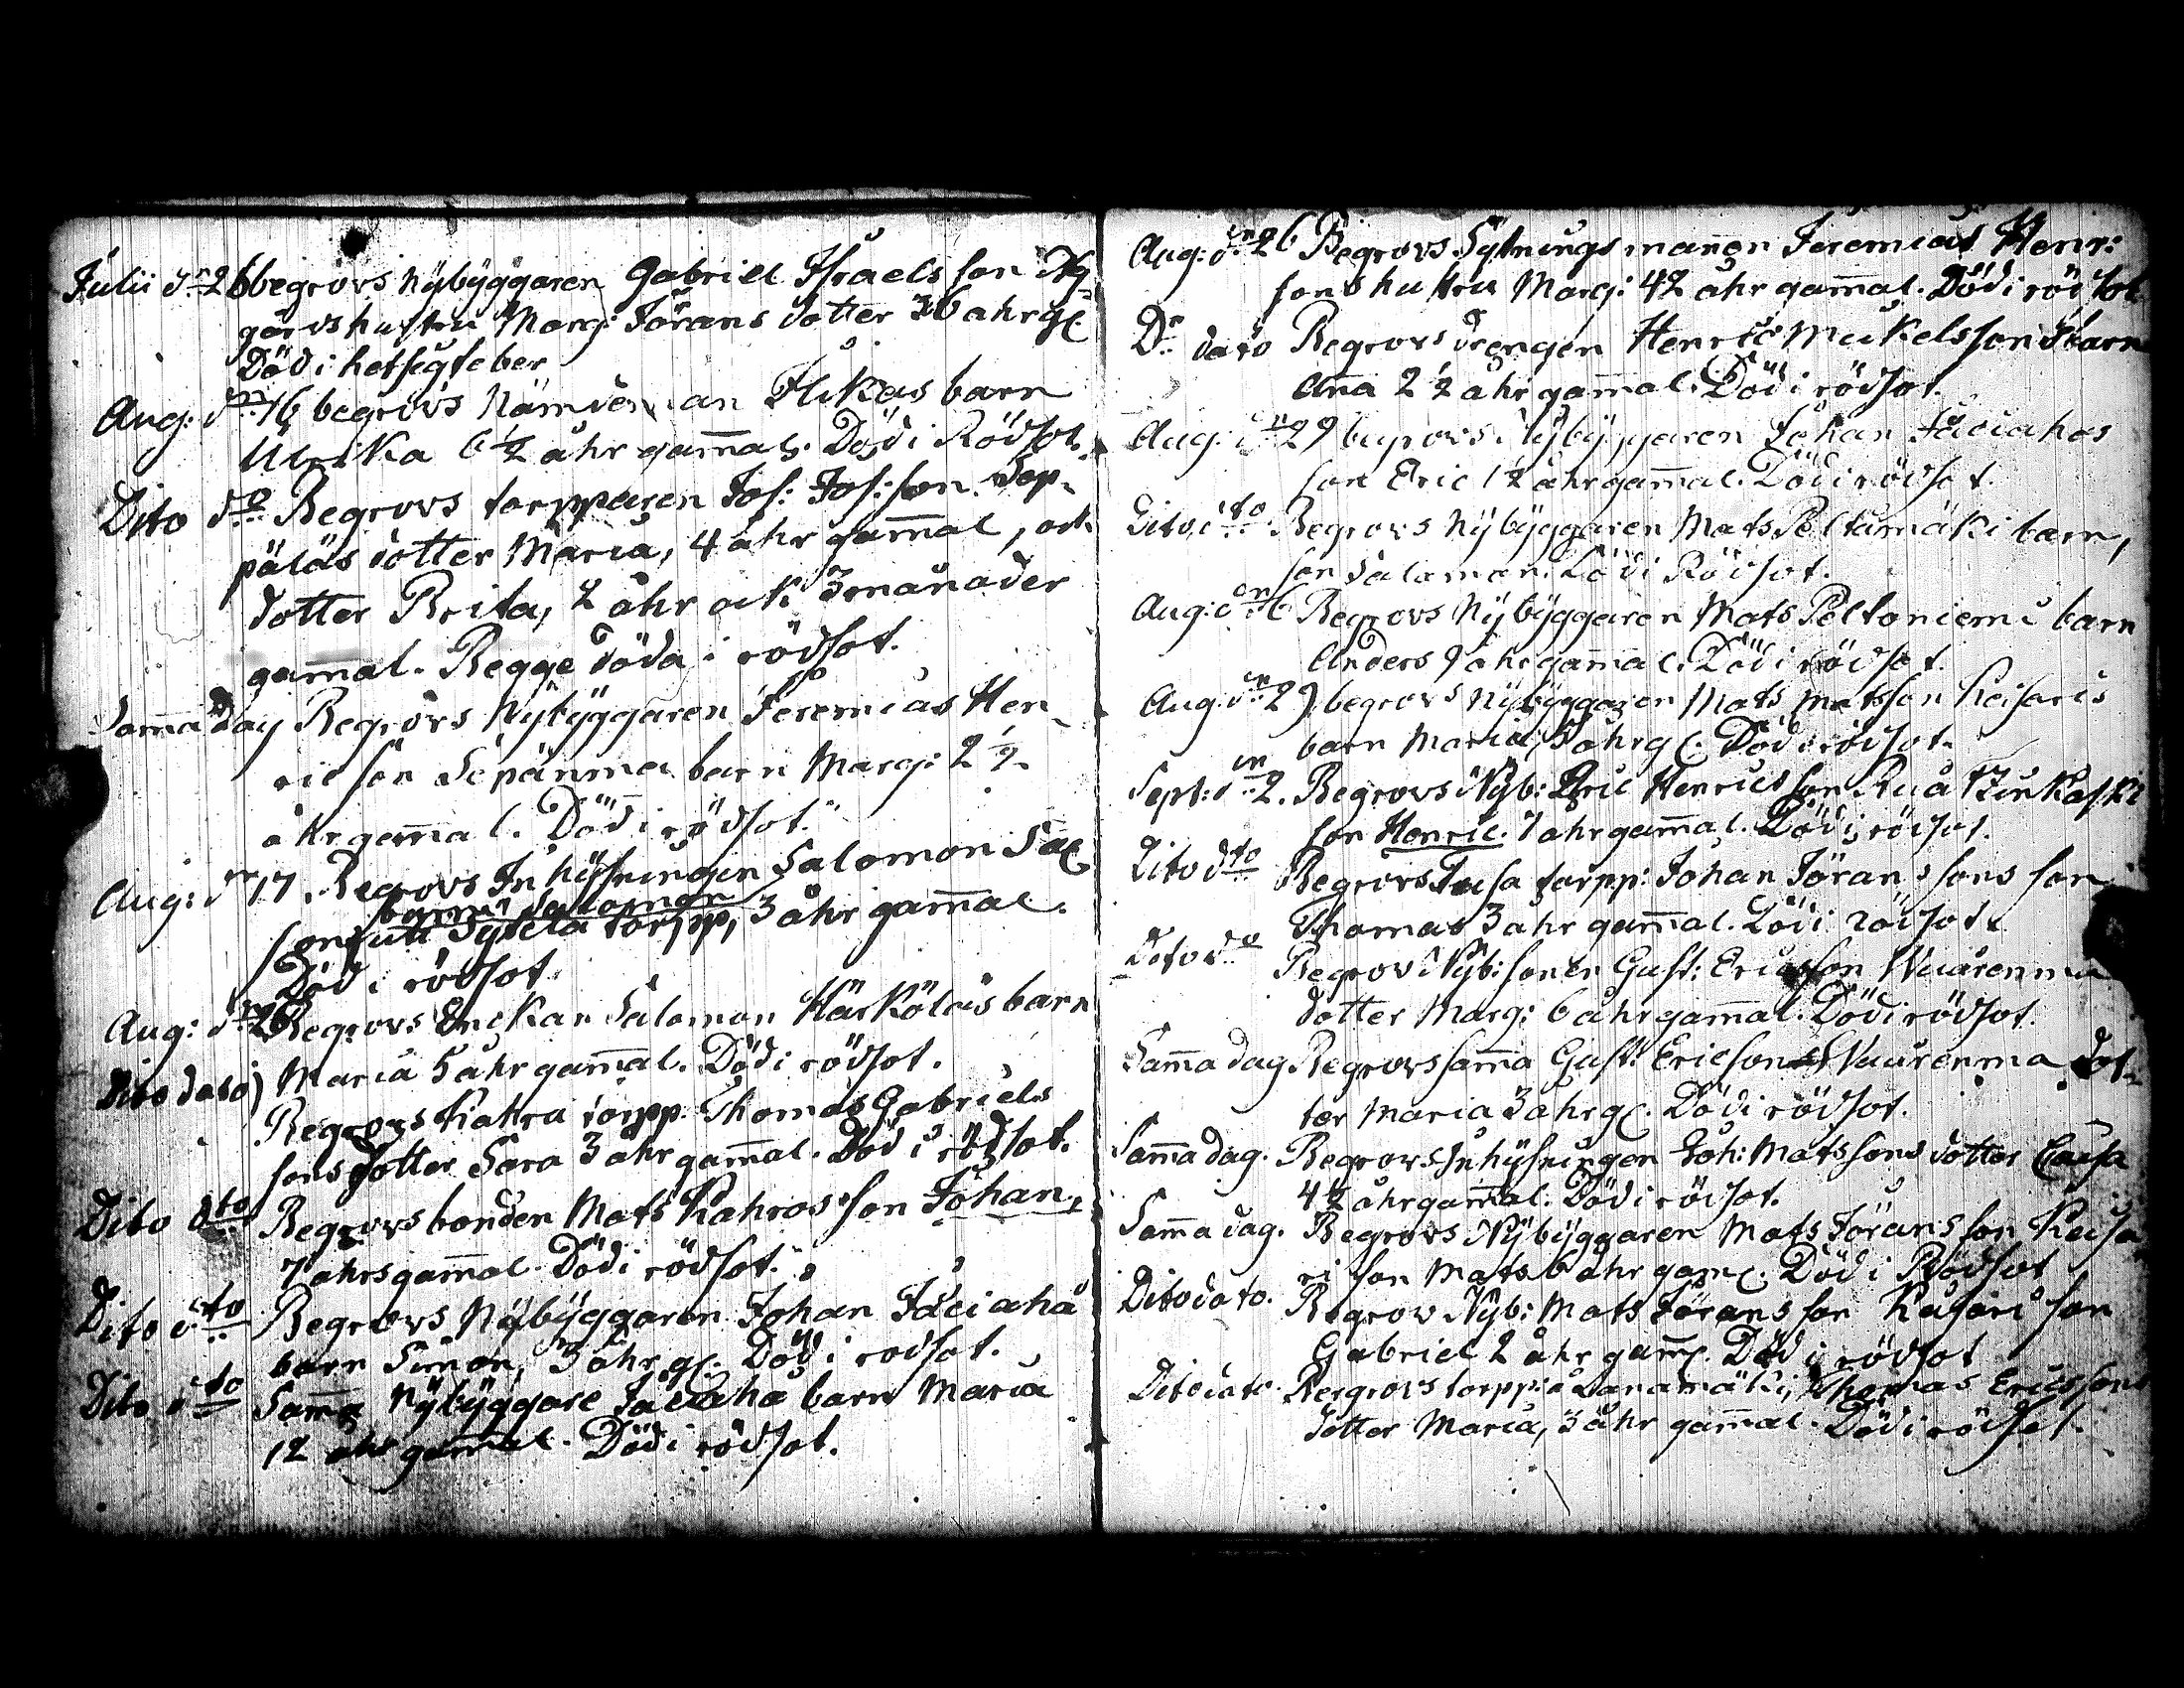 Julii d:n 26 begrovs Nybyggaren Gabriel Israels son Ny
gårds hustru Marg: Jörans dotter 36 ahr gl.
Död i hetsig feber
Aug: d:n 16 begrovs Nämdeman Ilkas barn
Ulrika 6 1/2 åhr gam̄al. Död i Rödsot.
Dito d:o Begrovs torpparen Jos: Jos:son Sep-
päläs dotter Maria, 4 åhr gam̄al, ock
dotter Brita, 2 åhr ock 3 månader
gam̄al. Begge döda i rödsot.
Sam̄a dag Begrovs Nybyggaren Jeremias Hen-
ric son Sepänma barn Marg: 2 1/2
åhr gam̄al. Död i rödsot.
Aug: d:n 17. Begrovs Inhysningen Salomon Sal
barn Salomon
son torpp, 3 åhr gam̄al.
Död i rödsot
Aug: d:n 26 Begrovs Enckan Salomon Härkölas barn
Maria 5 åhr gam̄al. Död i rödsot.
Dito dato Begrovs Kahra torpp Thomas Gabriels
sons dotter Sara 3 åhr gam̄al. Död i rödsot.
Dito d:to Begrovs bonden Mats Kahras son Johan,
7 åhrs gam̄al. Död i rödsot.
Dito d:to Begrovs Nybyggaren Johan Jäciaho
barn Simon, 3 åhr gl. Död i rodsot.
Dito d:to Sam̄a Nybyggare Jäciaho barn Maria
12 åhr gam̄al. Död i rödsot.
Aug: d:n 26 Begrovs Sytnings man̄en Jeremias Henr:
sons hustru Marg: 42 åhr gam̄al. Död i rödsot
D:o dato Begrovs drengen Henric Mickelssons barn
An̄a 2 1/2 åhr gam̄al. Död i rödsot.
Aug: d:n 29 begrovs Nybyggaren Johan Jäciahos
son Eric 1 1/2 åhr gam̄al. Död i rödsot.
Dito d:to Begrovs Nybyggaren Mats Peltamäki barn,
son Salamon. Död i Rödsot.
Aug: d:n Begrovs Nybyggaren Mats Peltoniemi barn
Anders 9 åhr gam̄al. Död i rödsot.
Aug: d:n 29 begrovs Nybyggaren Mats Matsson Keisaris
barn Maria, 5 åhr gl. Död i rödsot.
Sept: d:n 2. Begrovs Nyb: Eric Henricsson
son Henric. 7 åhr gam̄al. Död i rödsot.
Dito d:to Begrovs torpp: Johan Jöranssons son
Thomas 3 åhr gam̄al. Död i rödsot.
Dito d:o Begrov Nyb: sonen Gust: Ericsson Wuorenma
dotter Marg: 6 åhr gam̄al. Död i rödsot.
Sam̄a dag Begrovs sam̄a Gust: Ericsons Wuorenma dot-
ter Maria 3 åhr gl. Död i rödsot.
Sam̄a dag. Begrovs Inhysningen Joh: Matssons dotter Caisa
4 1/2 åhr gam̄al. Död i rödsot.
Sam̄a dag. Begrovs Nybyggaren Mats Jöransson Keisa
ri son Mats 6 åhr gaml. Död i Rödsot
Dito dato. Begrov Nyb: Mats Jöransson Kejsari son
Gabriel 2 åhr gaml. Död i rödsot
Dito dato Bergrovs torpp: Thomas Ericssons
dotter Maria, 3 åhr gam̄al. Död i rödsot.